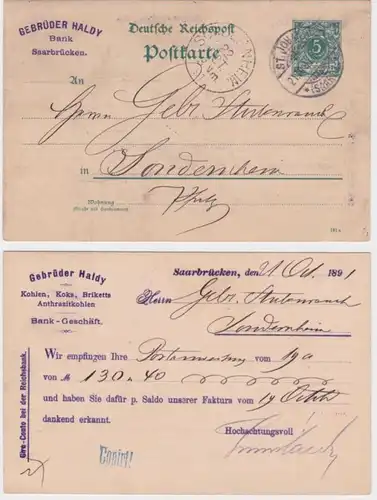 GEBRÜDER HALDY
Bank
Saarbrücken.
Deutsche Reichspost
Postkarte
5
ST. JOH
An
Herrn Gebr. Stutenrauch
in Sondernheim
Pfalz
Wohnung
(Straße und Hausnummer)
Gebrüder Haldy
Kohlen, Koks, Briketts
Anthrazitkohlen
Bank-Geschäft.
Giro-Conto bei der Reichsbank.
Saarbrücken, den 21 Oct. 1891
Herrn Gebr. Stutenrauch
Sondernheim
Wir empfingen Ihre Postanweisung vom 19 a
von ℳ 130.40
und haben Sie dafür p. Saldo unserer Faktura vom 19 Octob
dankend erkannt.
Hochachtungsvoll
Copirt!